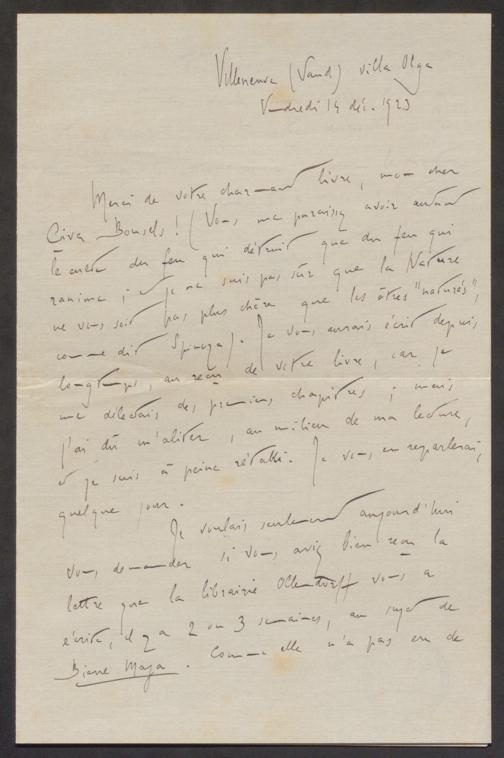 Villeneuve (Vaud) villa Olga
Vendredi 14 déc. 1923
Merci de votre charmant livre, mon cher
Çiva Bonsels! (Vous me paraissez avoir autant
le culte du feu qui détruit que du feu qui
ranime ; et je ne suis pas sûr que la Nature
ne vous soit pas plus chère que les êtres "naturés",
comme dit Spinoza). Je vous aurais écrit depuis
longtemps, au reçu de votre livre, car je
me délectais des premiers chapitres ; mais
j'ai dû m'aliter, au milieu de ma lecture,
et je suis à peine rétabli. Je vous en reparlerai,
quelque jour.
Je voulais seulement aujourd'hui
vous demander si vous aviez bien reçu la
lettre que la librairie Ollendorff vous a
écrite, il y a 2 ou 3 semaines, au sujet de
Biene Maja. Comme elle n'a pas eu de